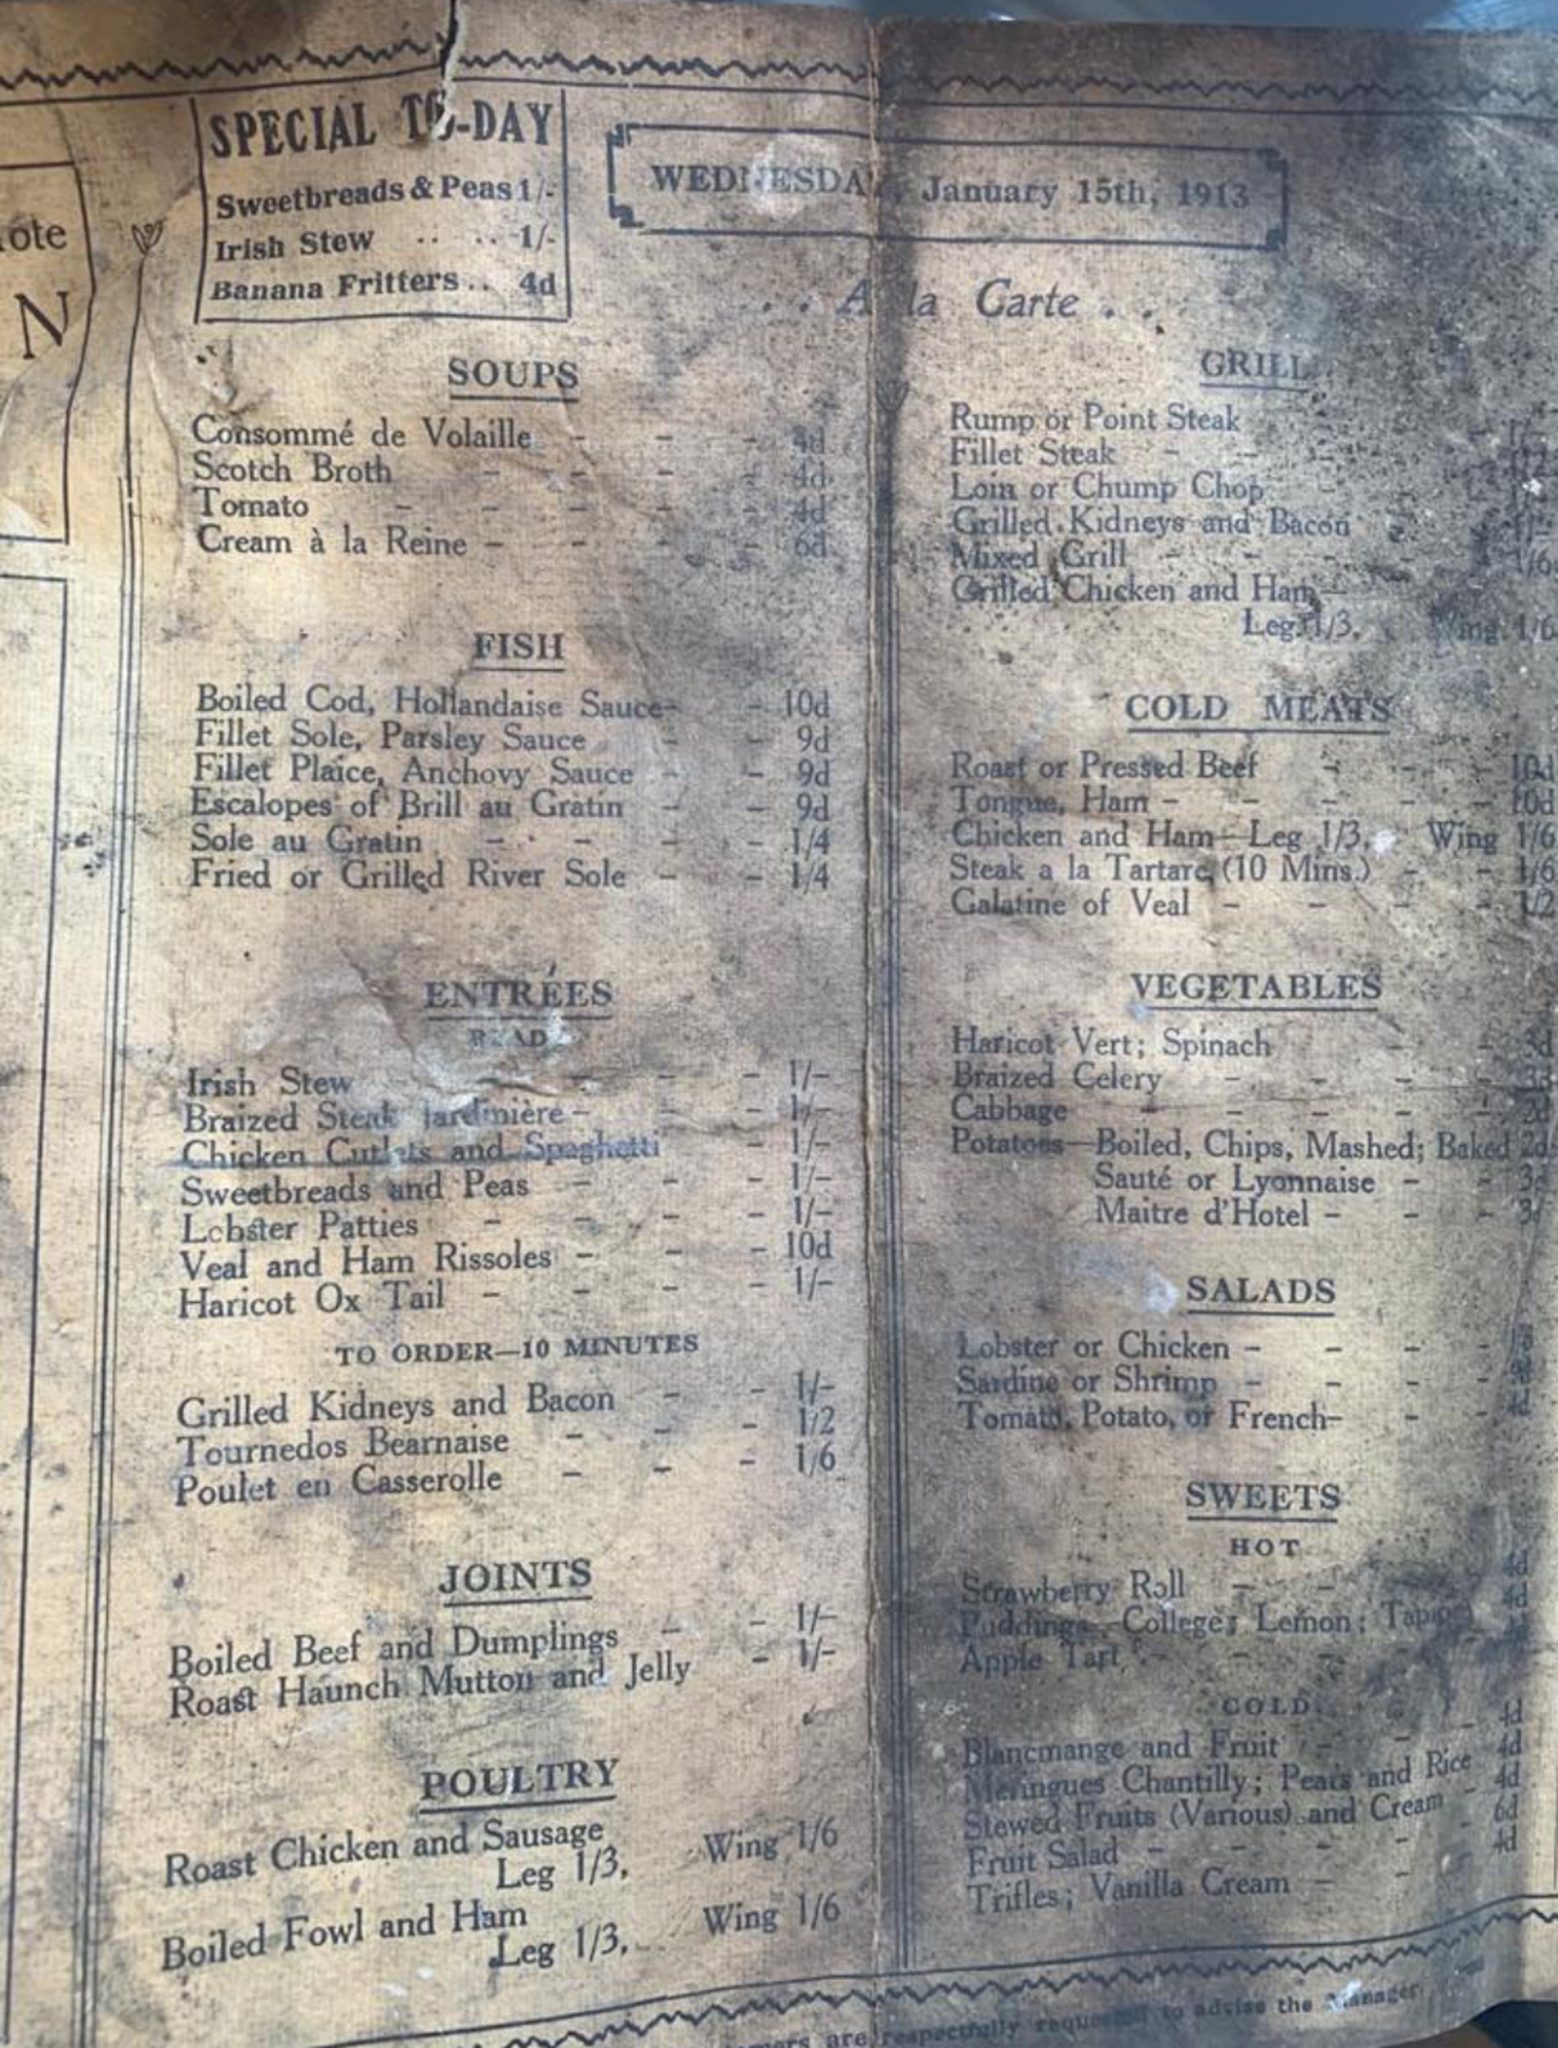 ote
N
SPECIAL TO-DAY
Sweetbreads & Peas 1/-
Irish Stew .. .. 1/-
Banana Fritters .. 4d
WEDNESDAY, January 15th, 1913
. . A la Carte . .
SOUPS
Consommé de Volaille - - - 4d
Scotch Broth - - - - 4d
Tomato - - - - - 4d
Cream à la Reine - - - - 6d
FISH
Boiled Cod, Hollandaise Sauce- - 10d
Fillet Sole, Parsley Sauce - - 9d
Fillet Plaice, Anchovy Sauce - - 9d
Escalopes of Brill au Gratin - - 9d
Sole au Gratin - - - - 1/4
Fried or Grilled River Sole - - 1/4
ENTRÉES
READY
Irish Stew - - - 1/-
Braized Steak Jardinière - - - 1/-
Chicken Cutlets and Spaghetti - 1/-
Sweetbreads and Peas - - - 1/-
Lobster Patties - - - - 1/-
Veal and Ham Rissoles - - - 10d
Haricot Ox Tail - - - - 1/-
TO ORDER—10 MINUTES
Grilled Kidneys and Bacon - - 1/-
Tournedos Bearnaise - - - 1/2
Poulet en Casserolle - - - 1/6
JOINTS
Boiled Beef and Dumplings - - 1/-
Roast Haunch Mutton and Jelly - 1/-
POULTRY
Roast Chicken and Sausage
Leg 1/3, Wing 1/6
Boiled Fowl and Ham
Leg 1/3, Wing 1/6
GRILL
Rump or Point Steak - 1/-
Fillet Steak - - - 1/2
Loin or Chump Chop - -
Grilled Kidneys and Bacon - 1/-
Mixed Grill - - - 1/6
Grilled Chicken and Ham—
Leg 1/3, Wing 1/6
COLD MEATS
Roast or Pressed Beef - - - 10d
Tongue, Ham - - - - - 10d
Chicken and Ham—Leg 1/3, Wing 1/6
Steak a la Tartare (10 Mins.) - - 1/6
Galatine of Veal - - - - 1/2
VEGETABLES
Haricot Vert; Spinach - - 3d
Braized Celery - - - - 3d
Cabbage - - - - 2d
Potatoes—Boiled, Chips, Mashed; Baked 2d
Sauté or Lyonnaise - - 3d
Maitre d'Hotel - - - 3d
SALADS
Lobster or Chicken - - - -
Sardine or Shrimp - - - -
Tomato, Potato, or French- - - 4d
SWEETS
HOT
Strawberry Roll - - 4d
Puddings—College; Lemon; Tapioca 4d
Apple Tart - - - - 4d
COLD
Blancmange and Fruit - - - 4d
Meringues Chantilly; Pears and Rice 4d
Stewed Fruits (Various) and Cream - 4d
Fruit Salad - - - - 6d
Trifles; Vanilla Cream - - 4d
are respectfully requested to advise the Manager